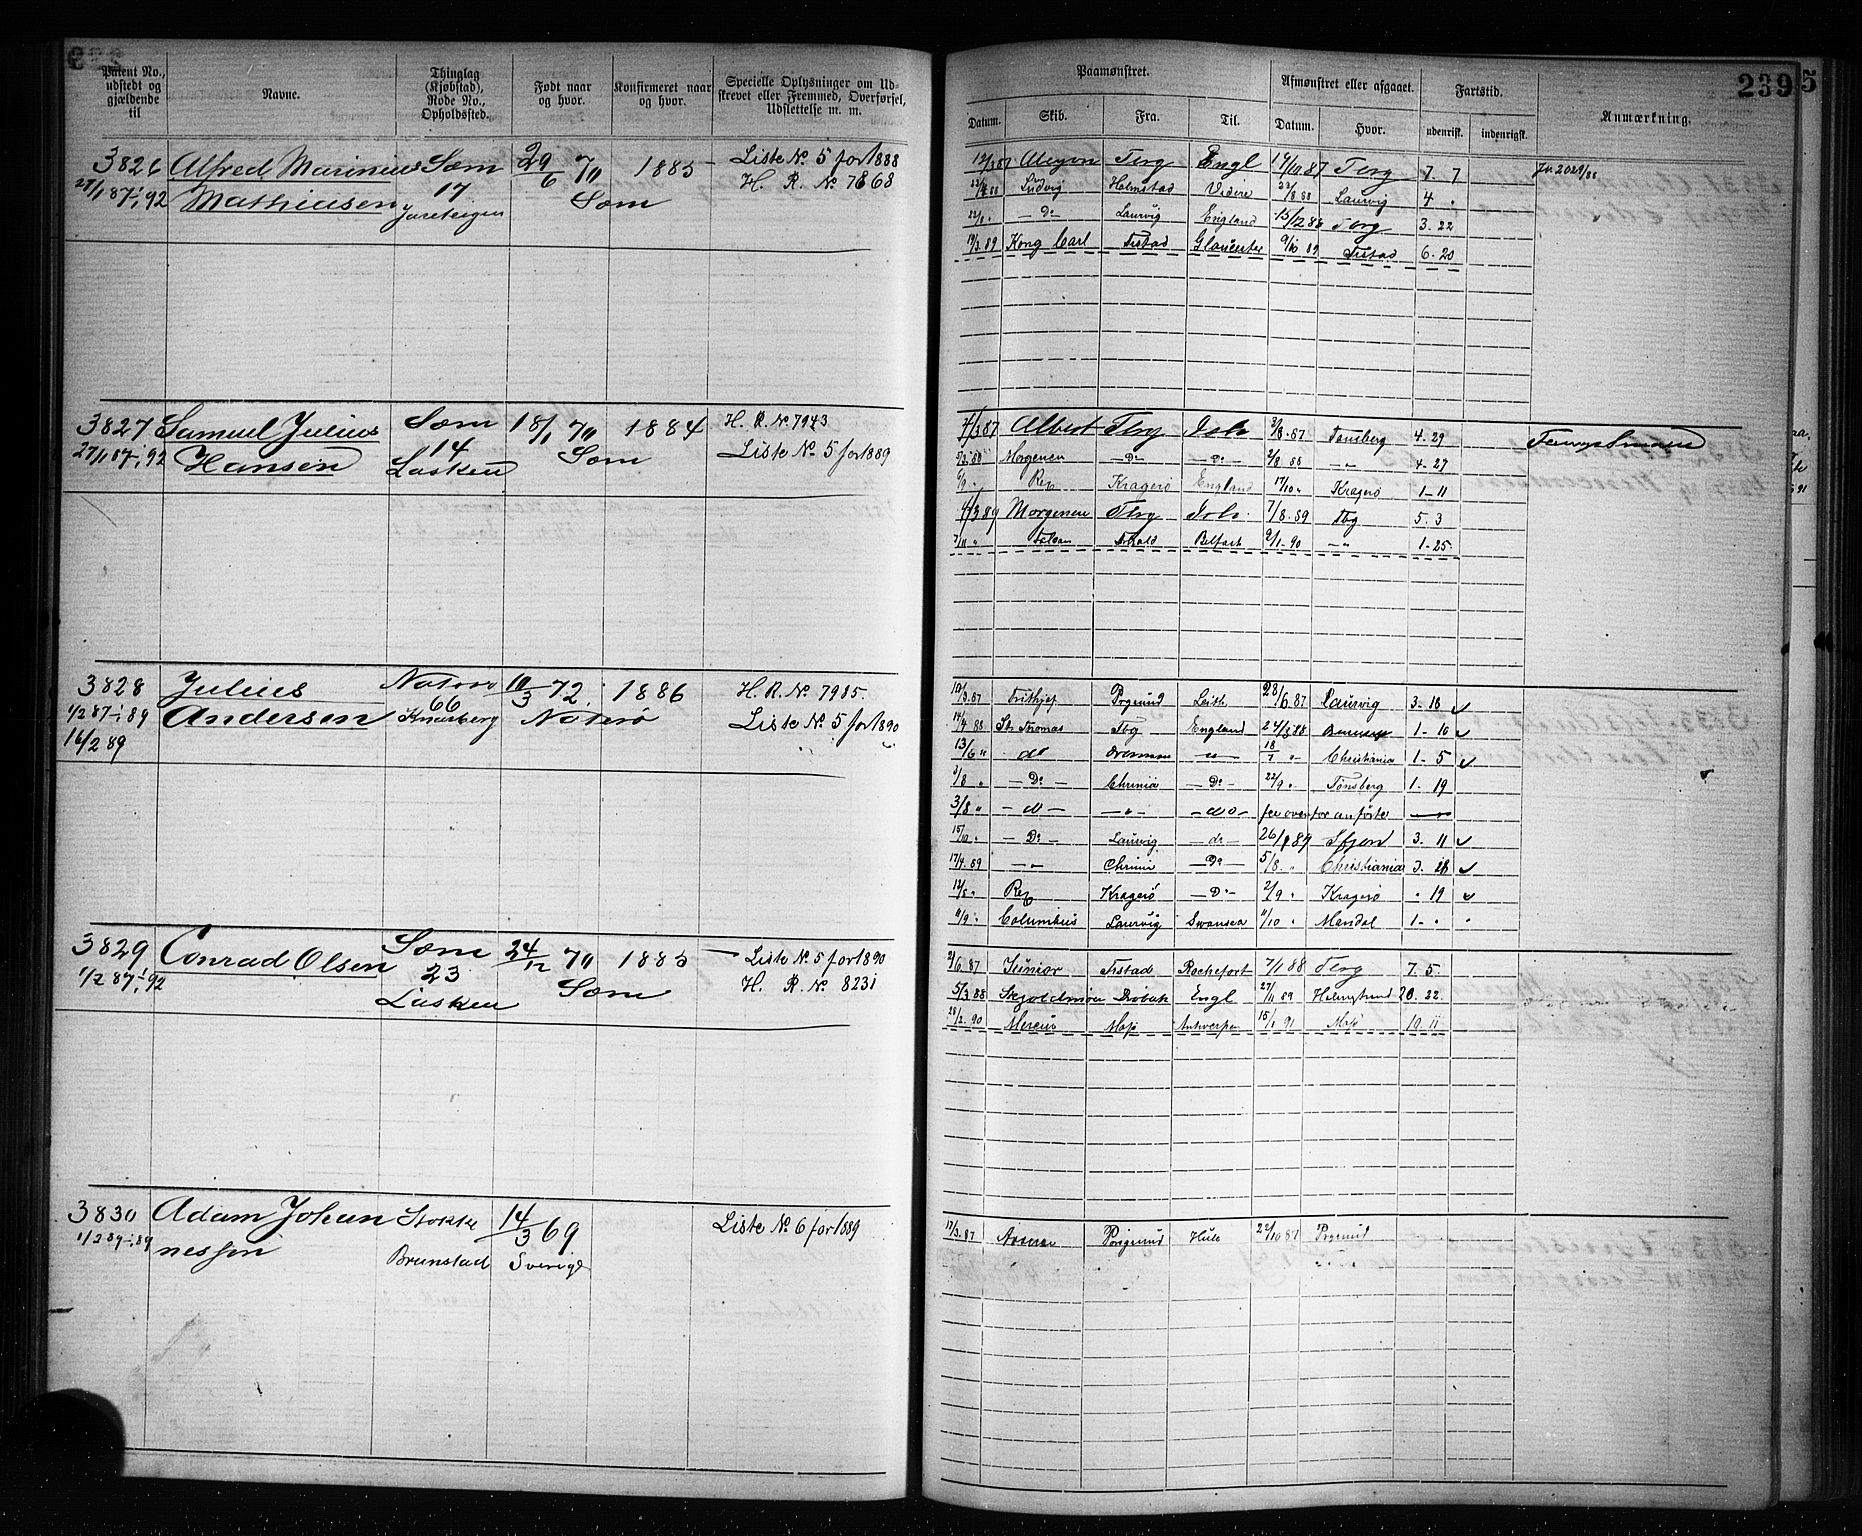 239
Patent No., udstedt og gjældende til
Navne.
Thinglag (Kjøbstad), Rode No., Opholdssted.
Født naar og hvor.
Konfirmeret naar og hvor.
Specielle Oplysninger om Udskrevet eller Fremmed, Overførsel, Udslettelse m. m.
Paamønstret.
Afmønstret eller afgaaet.
Fartstid.
Anmærkning.
Datum. Skib. Fra. Til. Datum. Hvor. udenrigsk. indenrigsk.
3826 Alfred Marinius Sœm 29/6 70 1885 Liste No. 5 for 1888
27/1 87-1/1 92 Mathiasen 17 Sœm H. R. No 7868
12/3 87 Terg Engl 14/10 87 Terg 7. 7
Ludvig Holmstad Videre 22/8 88 Laurvig 4 "
22/8 " — Do Laurvig England 15/12 88 Terg 3. 22
19/3 89 Kong Carl Frstad Gloucester 9/10 89 Frstad 6-20
3827 Samuel Julius Sœm 18/1 70 1884 H. R. No 7973
27/1 87-1/1 92 Hansen 14 Sœm Liste No. 5 for 1889
Lasken
4/3 87 Albert Tbrg Ish. 3/8. 87 Tønsberg 4. 29
Morgenen — Do — — Do — 2/8 88 — " 4-27
6/9 " Rex Kragerø England 17/10 " Kragerø 1-11
4/3 89 Morgenen Tbrg Ish. 7/8. 89 Tbg 5. 3
7/11 " Belfast 2/1-90 — " 1-25
3828 Julius 10/3 72 1886 H. R. No 7985.
1/2 87-1/1 89 Andersen 66 Knarberg Nøterø Liste No. 5 for 1890
16/2 89
10/3. 87 Frithjof Prgrund Leith 28/6. 87 Laurvig 3-18
14/4 88 St. Thomas Tbg England 24/5 88 1-10
13/6 " do 18/7 " Christiania 1-5
3/8 " — Do — Chrinia — Do — 22/9 " Tønsberg 1. 19
3/8 " — do — — " — — do — foranførte
15/10 " — Do — Laurvig — do — 26/1 89 3. 11
17/4. 89 — " Chrinia — Do — 5/8 " Christiania 3. 28
12/8 " Rex Kragerø — Do — 2/9 " Kragerø " 19
11/9 " Columbus Laurvig Swansea 11/10 " Mandal 1- "
3829 Conrad Olsen Sœm 24/12 70 1885 Liste No. 5 for 1890
1/2 87-1/1 92 23 Sœm H. R. No 8231
Lasken
2/6. 87 Junior Frstad Rochefort 7/1 88 Tbrg 7. 5.
5/3 88 Skjoldmøen Drøbak Engl 27/11 89 Holmstrand 20. 22.
28/2. 90 Mercur Moss Antwerpen 15/1 91 Moss 10. 11
3830 Adam Johan Stokke 14/3 69 Liste No. 6 for 1889
nessen Brunstad Sverige
17/3. 87 Porsgrund Hull 22/10 87 Prgrund